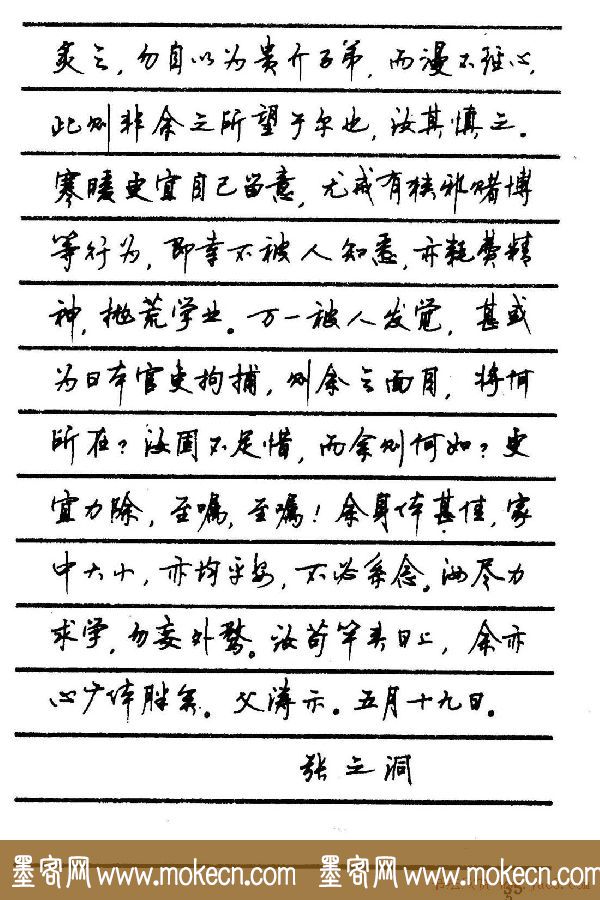 炙之,勿自以为贵介子弟,而漫不经心,
此则非余之所望于尔也,汝其慎之。
寒暖更宜自己留意,尤戒有狭邪赌博
等行为,即幸不被人知悉,亦耗费精
神,抛荒学业。万一被人发觉,甚或
为日本官吏拘捕,则余之面目,将何
所在?汝固不足惜,而余则何如?更
宜力除,至嘱,至嘱!余身体甚佳,家
中大小,亦均平安,不必系念。汝尽力
求学,勿妄外骛。汝苟竿头日上,余亦
心广体胖矣。父涛示。五月十九日。
张之洞
墨客网 www.mokecn.com 墨客网 www.mokecn.com